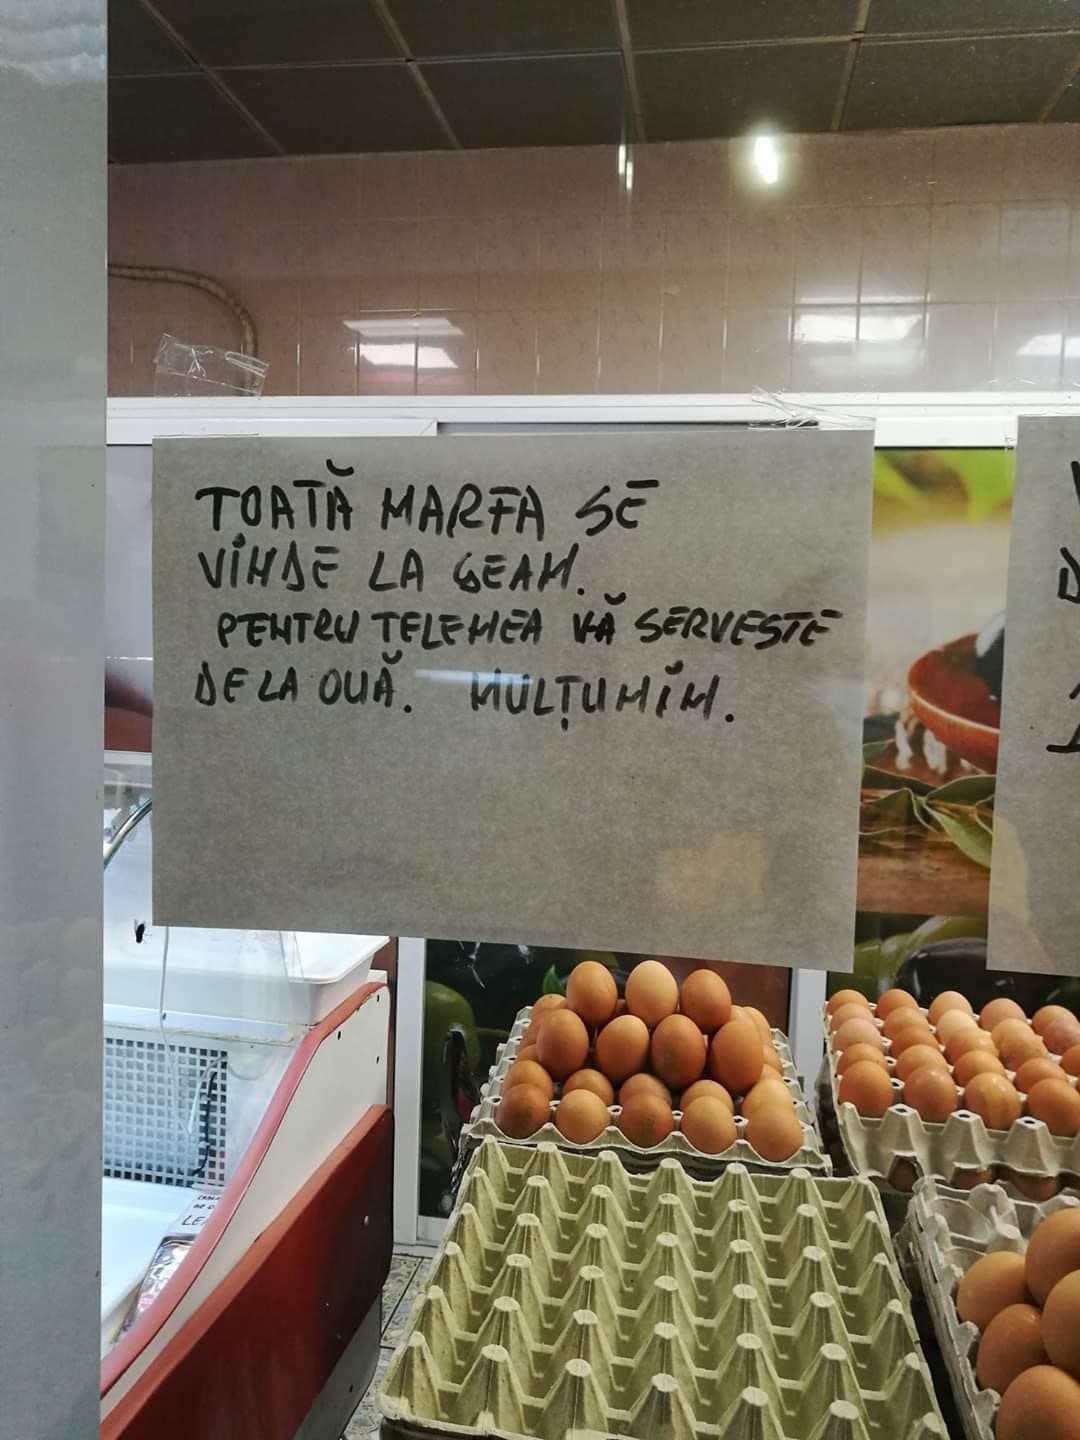 TOATĂ MARFA SE
VINDE LA GEAM.
PENTRU TELEMEA VĂ SERVESTE
DE LA OUĂ. MULȚUMIM.